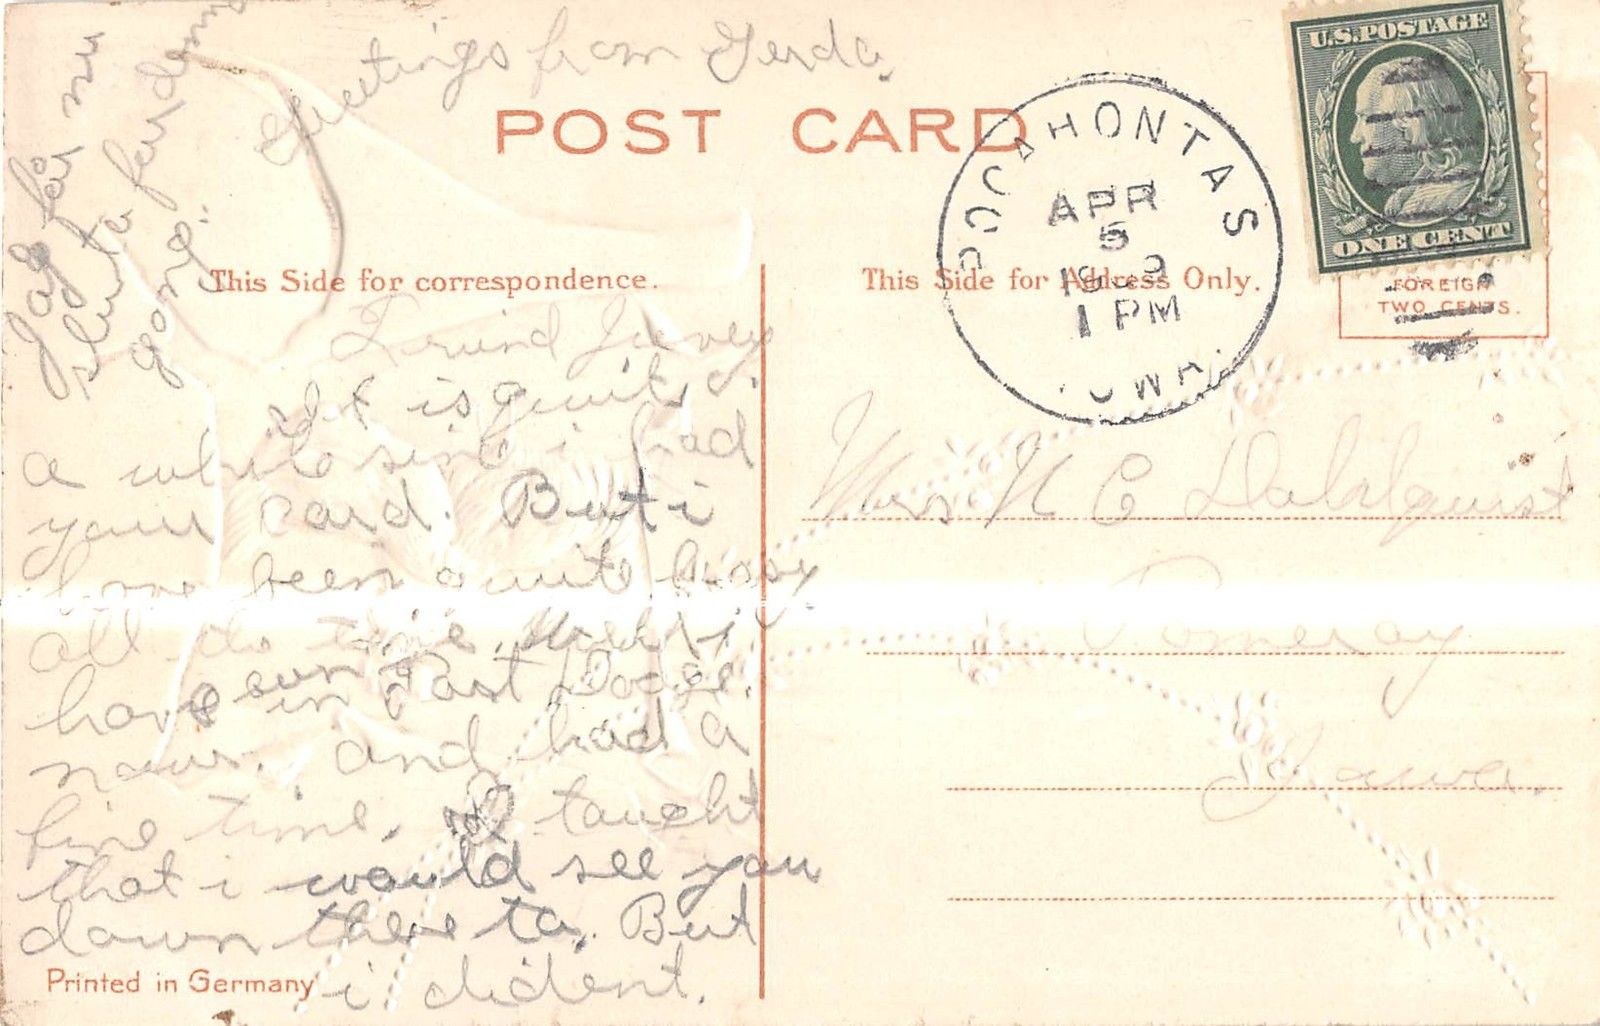 Greetings from Gerda.
Jag får nu
sluta for denna
gong.
POST CARD
U.S. POSTAGE
ONE CENT
POCAHONTAS
APR
5
1 PM
IOWA.
FOREIGN
TWO CENTS.
This Side for correspondence.
This Side for Address Only.
Frind
It is quit
a while sinc i had
your card. But i
have been quite busy
all do time. Well i
have bun in Fort Dodge.
now. and had a
fine time. I taught
that i would see you
down there to. But
i dident.
Mrs N C Dahlquist
Pomeroy
Iowa.
Printed in Germany